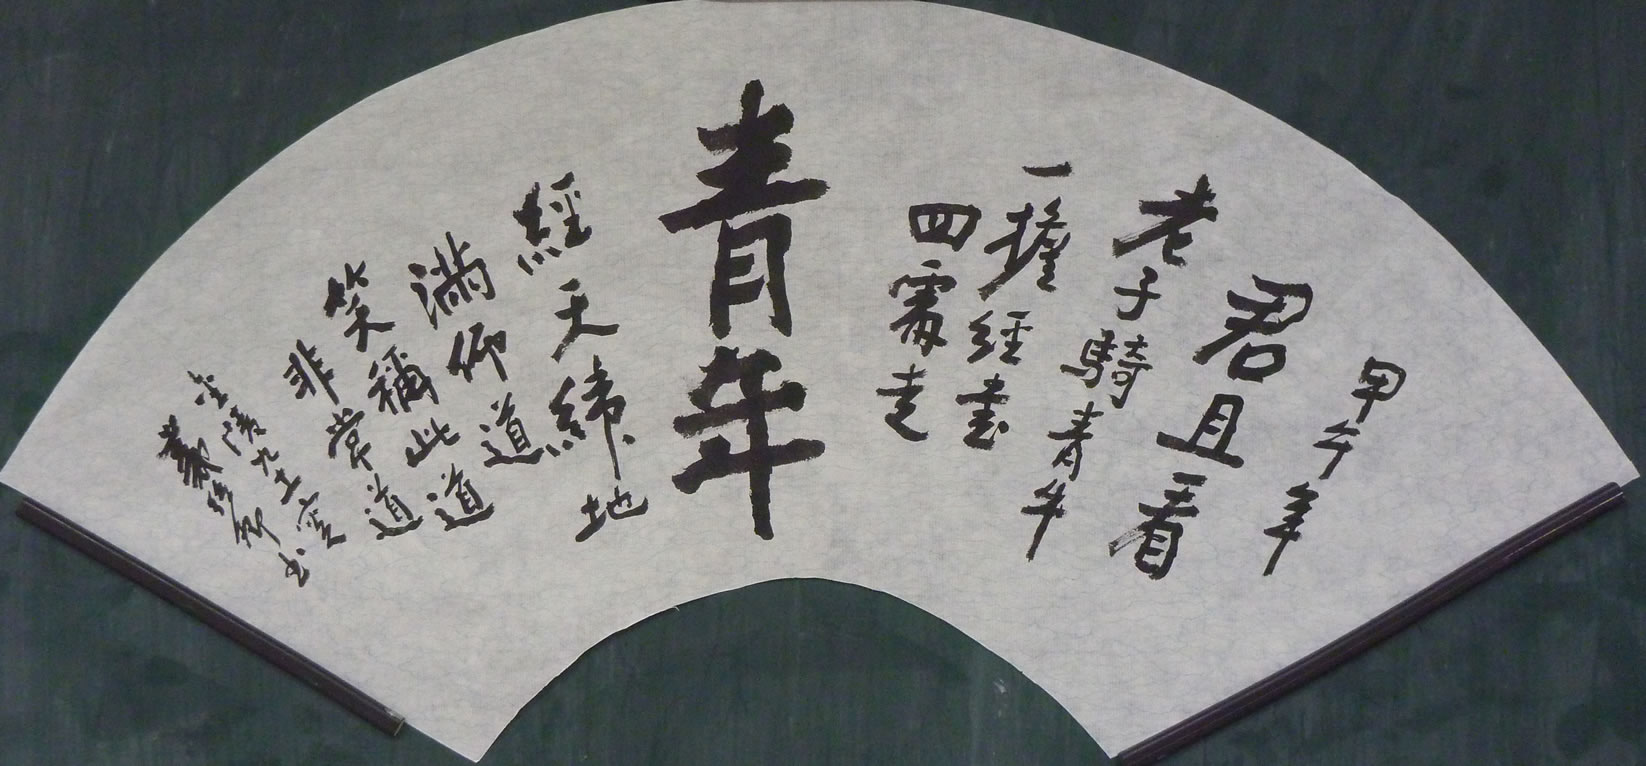 甲午年
君且看
老子騎青牛
一擔經書
四處走
青年
經天緯地
滿仰道
笑稱此道
非常道
金陵九十二叟
書